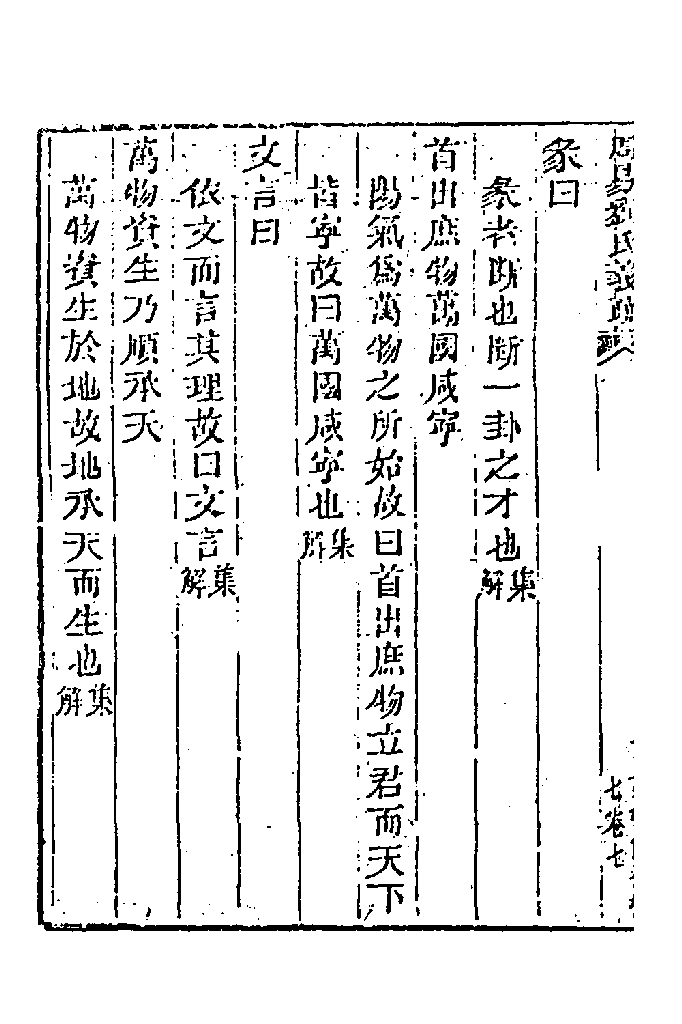 周易劉氏義疏
彖曰
彖者斷也斷一卦之才也集解
首出庶物萬國咸寧
陽氣爲萬物之所始故曰首出庶物立君而天下
皆寧故曰萬國咸寧也集解
文言曰
依文而言其理故曰文言集解
萬物資生乃順承天
萬物資生於地故地承天而生也集解
卷七
七